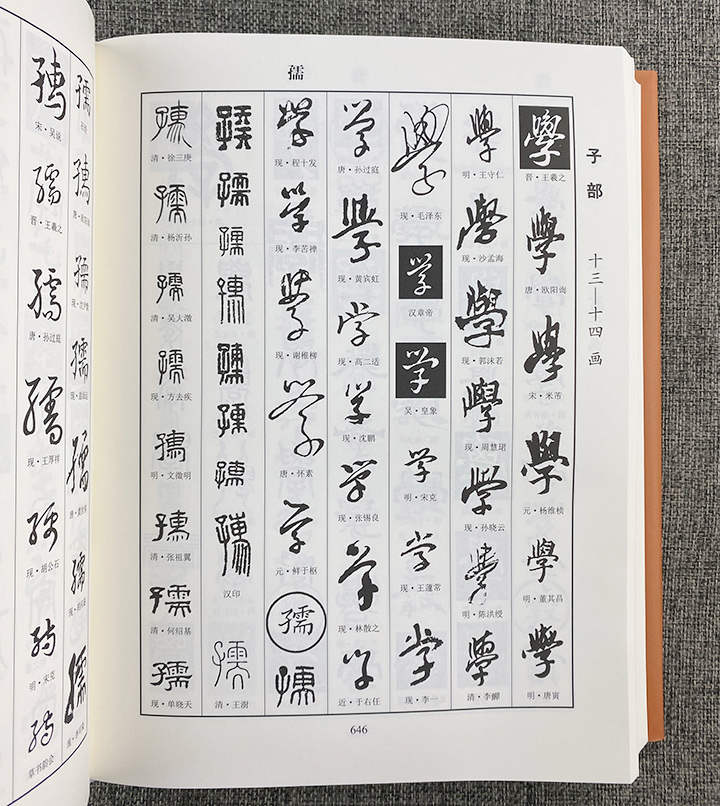 孺
子部
十三—十四画
學
晋·王羲之
學
唐·欧阳询
學
宋·米芾
學
元·杨维桢
學
明·董其昌
學
明·唐寅
學
明·王守仁
學
现·沙孟海
學
现·郭沫若
學
现·周慧珺
學
现·孙晓云
學
明·陈洪绶
學
清·李鱓
學
现·毛泽东
学
汉章帝
学
吴·皇象
学
明·宋克
学
现·王蘧常
学
现·李一
学
唐·孙过庭
學
现·黄宾虹
学
现·高二适
学
现·沈鹏
学
现·张锡良
学
现·林散之
学
近·于右任
學
现·程十发
学
现·李苦禅
學
现·谢稚柳
学
唐·怀素
学
元·鲜于枢
孺
孺
孺
孺
孺
孺
孺
孺
孺
孺
汉印
孺
清·王澍
孺
清·徐三庚
孺
清·杨沂孙
孺
清·吴大澂
孺
现·方去疾
孺
明·文徵明
孺
清·张祖翼
孺
清·何绍基
孺
现·单晓天
646
孺
宋·吴说
孺
晋·王羲之
孺
唐·孙过庭
孺
现·王厚祥
孺
现·胡公石
孺
明·宋克
孺
草书韵会